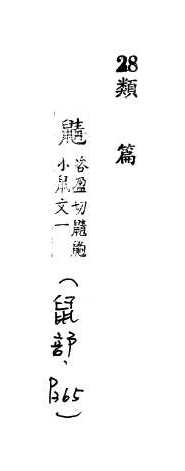 28 類篇
鼱 咨盈切鼱鼩
小鼠文一
(鼠部、P365)